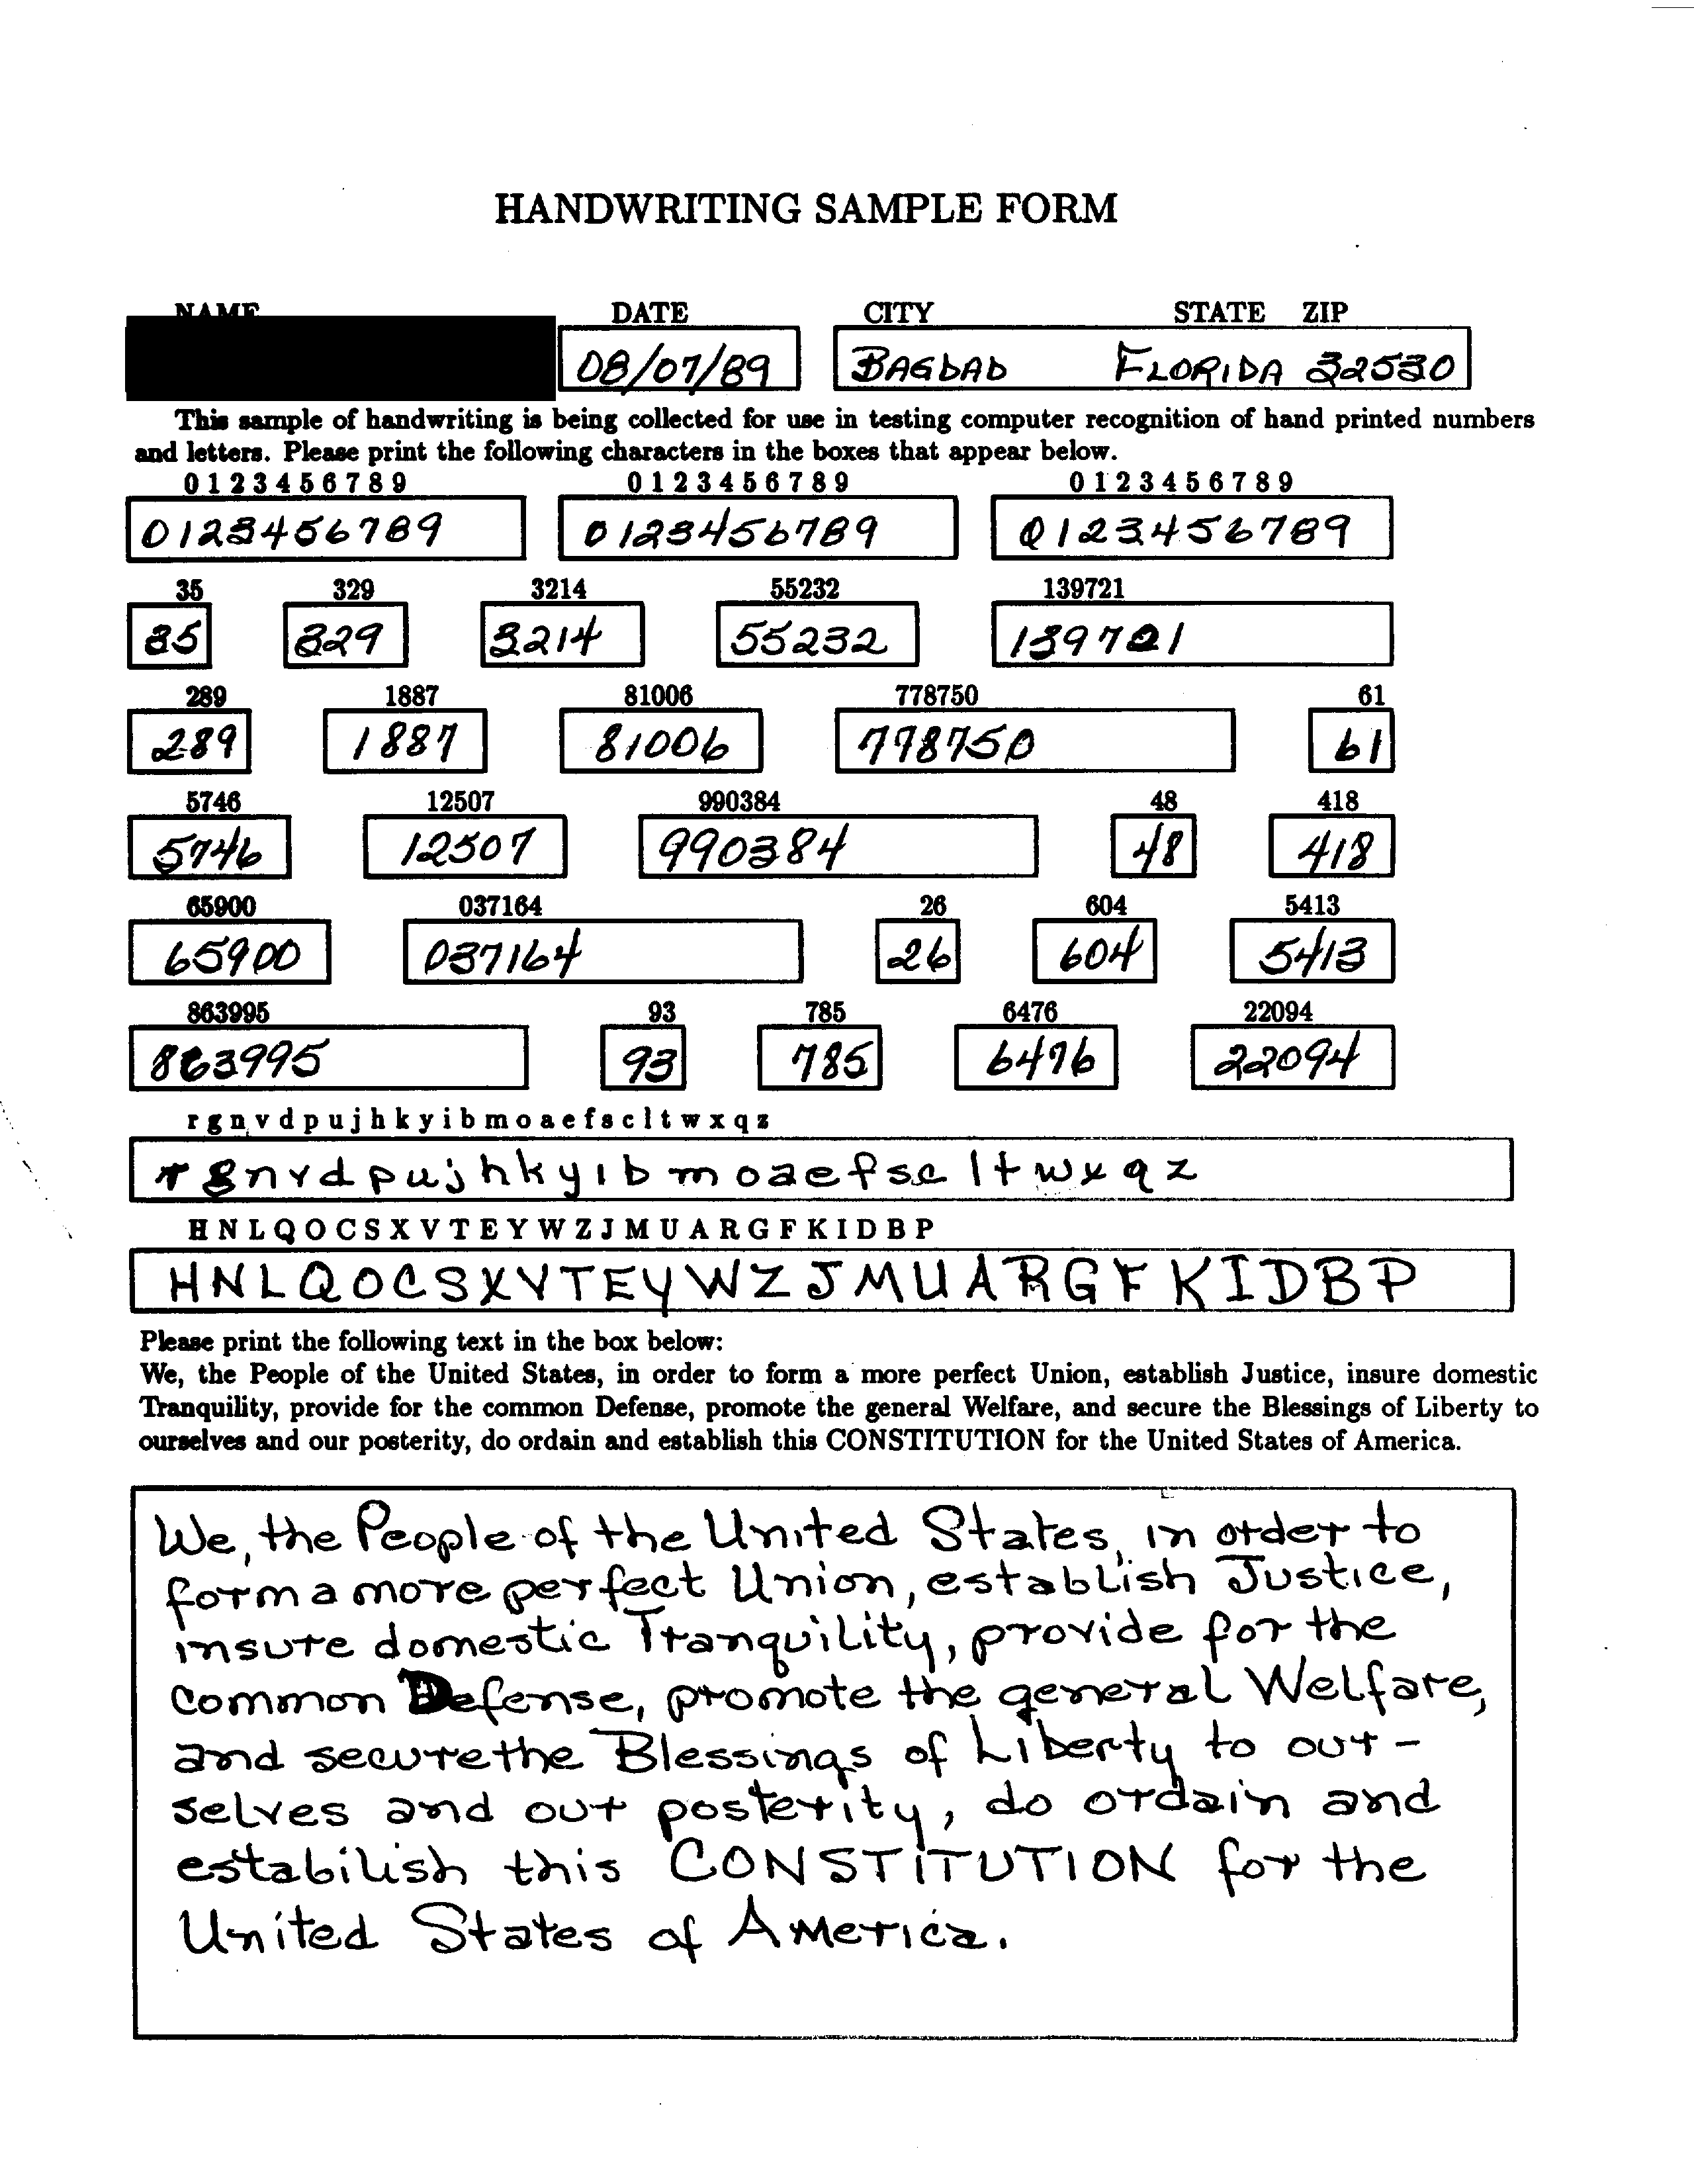 HANDWRITING SAMPLE FORM
NAME DATE CITY STATE ZIP
08/07/89 BAGDAD FLORIDA 32530
This sample of handwriting is being collected for use in testing computer recognition of hand printed numbers
and letters. Please print the following characters in the boxes that appear below.
0 1 2 3 4 5 6 7 8 9 0 1 2 3 4 5 6 7 8 9 0 1 2 3 4 5 6 7 8 9
0123456789 0123456789 0123456789
35 329 3214 55232 139721
35 329 3214 55232 139721
289 1887 81006 778750 61
289 1887 81006 778750 61
5746 12507 990384 48 418
5746 12507 990384 48 418
65900 037164 26 604 5413
65900 037164 26 604 5413
863995 93 785 6476 22094
863995 93 785 6476 22094
r g n v d p u j h k y i b m o a e f s c l t w x q z
r g n v d p u j h k y i b m o a e f s c l t w x q z
H N L Q O C S X V T E Y W Z J M U A R G F K I D B P
H N L Q O C S X V T E Y W Z J M U A R G F K I D B P
Please print the following text in the box below:
We, the People of the United States, in order to form a more perfect Union, establish Justice, insure domestic
Tranquility, provide for the common Defense, promote the general Welfare, and secure the Blessings of Liberty to
ourselves and our posterity, do ordain and establish this CONSTITUTION for the United States of America.
We, the People of the United States, in order to
form a more perfect Union, establish Justice,
insure domestic Tranquility, provide for the
common Defense, promote the general Welfare,
and secure the Blessings of Liberty to our-
selves and our posterity, do ordain and
estabilish this CONSTITUTION for the
United States of America.